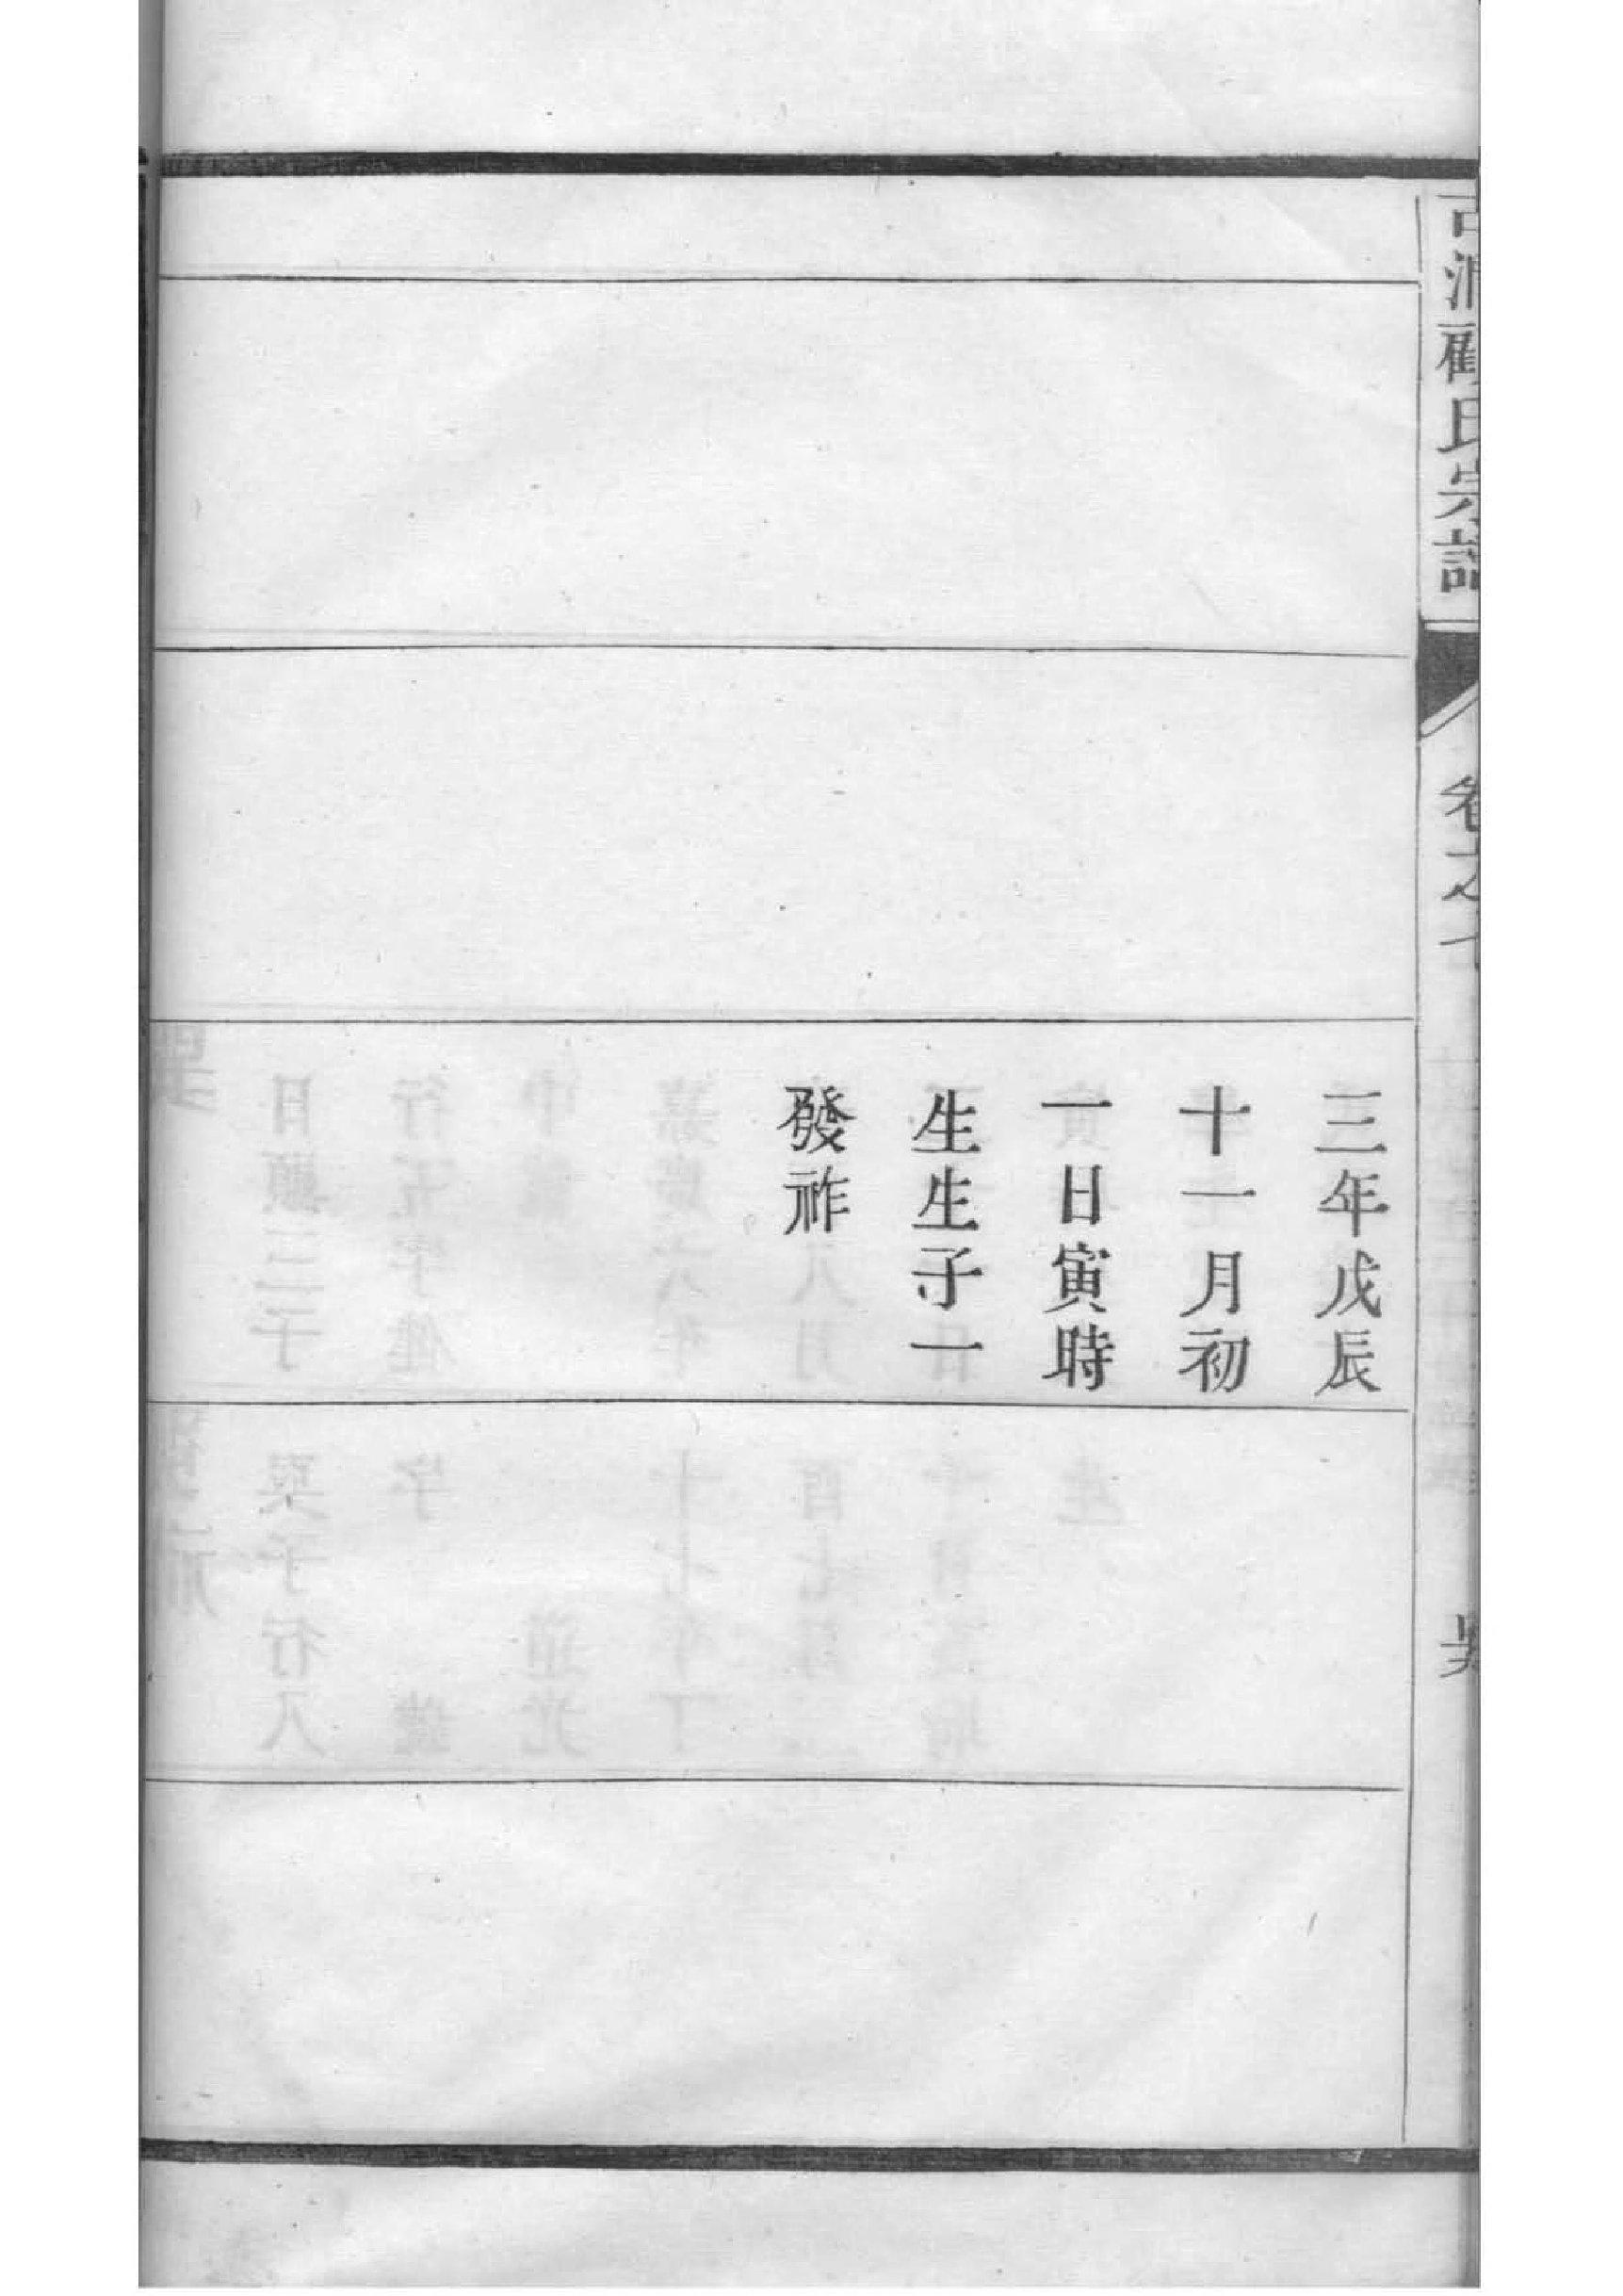 顧氏宗譜
卷之七
三年戊辰
十一月初
一日寅時
生生子一
發祚